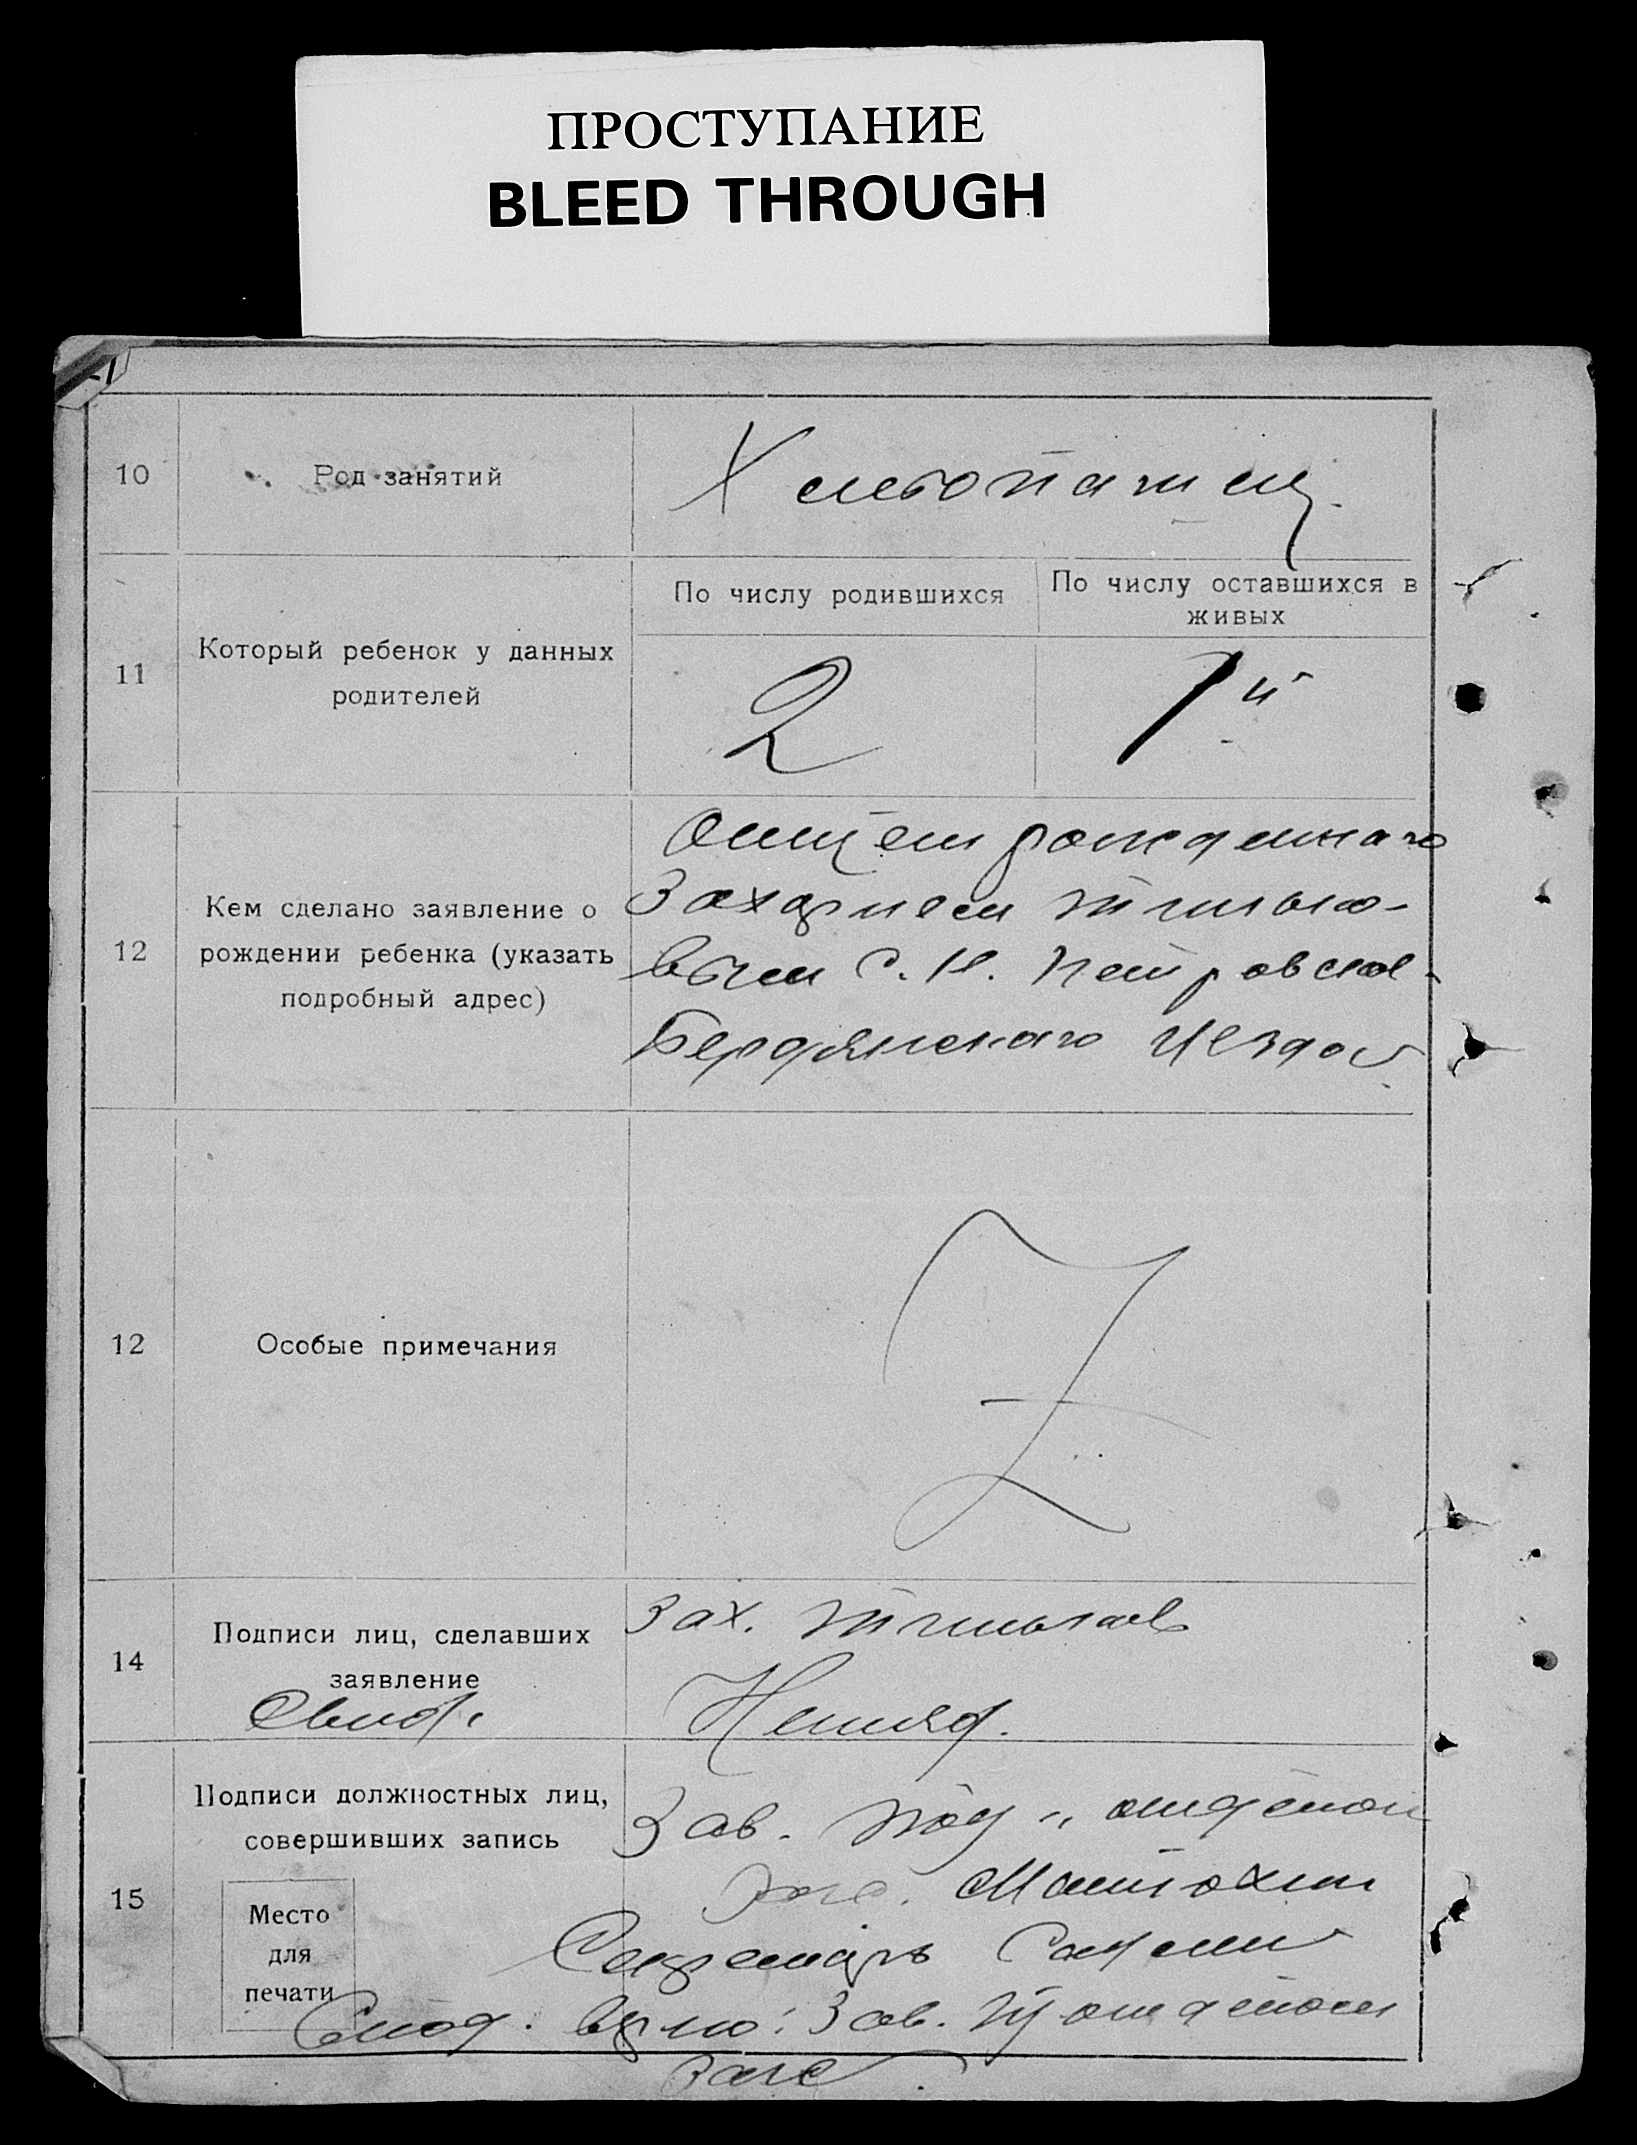 ПРОСТУПАНИЕ
BLEED THROUGH
10
Род занятий
Хлебопашец.
11
Который ребенок у данных
родителей
По числу родившихся
По числу оставшихся в
живых
2
1й
12
Кем сделано заявление о
рождении ребенка (указать
подробный адрес)
Отцем рожденнаго
Захарием
вым С. Н. Петровска-
Бердянскаго
12
Особые примечания
Z
14
Подписи лиц, сделавших
заявление
Свид.
Зах.
Неляд.
15
Подписи должностных лиц,
совершивших запись
Место
для
печати
Зав. под. отделом
Матюхин
Секретарь
верно: Зав. п/отделом
Загс